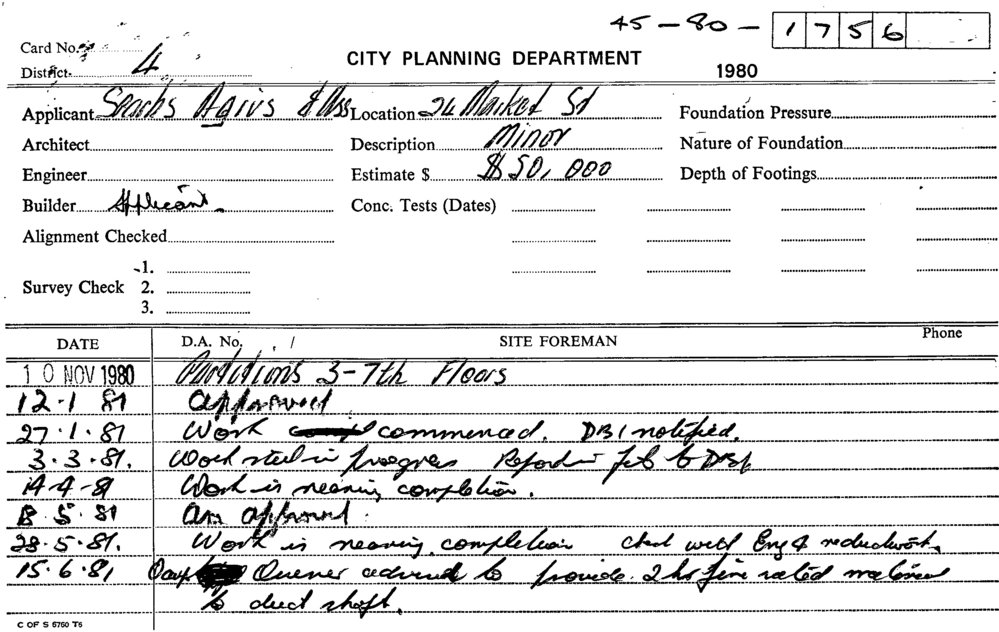 45-80-1756
Card No.
District 4
CITY PLANNING DEPARTMENT
1980
Applicant Searls Agius & Ass Location 24 Market St Foundation Pressure
Architect Description Minor Nature of Foundation
Engineer Estimate $ $50,000 Depth of Footings
Builder Applicant. Conc. Tests (Dates)
Alignment Checked
Survey Check 1.
2.
3.
DATE D.A. No. SITE FOREMAN Phone
10 NOV 1980 Partitions 3-7th Floors
12.1 81 approved
27.1.81 Work commenced. DBI notified.
3.3.81. Work still in progress Report in file to DSI
14-4-81 Work is nearing completion.
18.5.81 Am approved.
28.5.81. Work is nearing completion with Eng & reductwork.
15.6.81 Owner advised to provide 2 hr fire rated material
to duct shaft.
C OF S 5750 T6